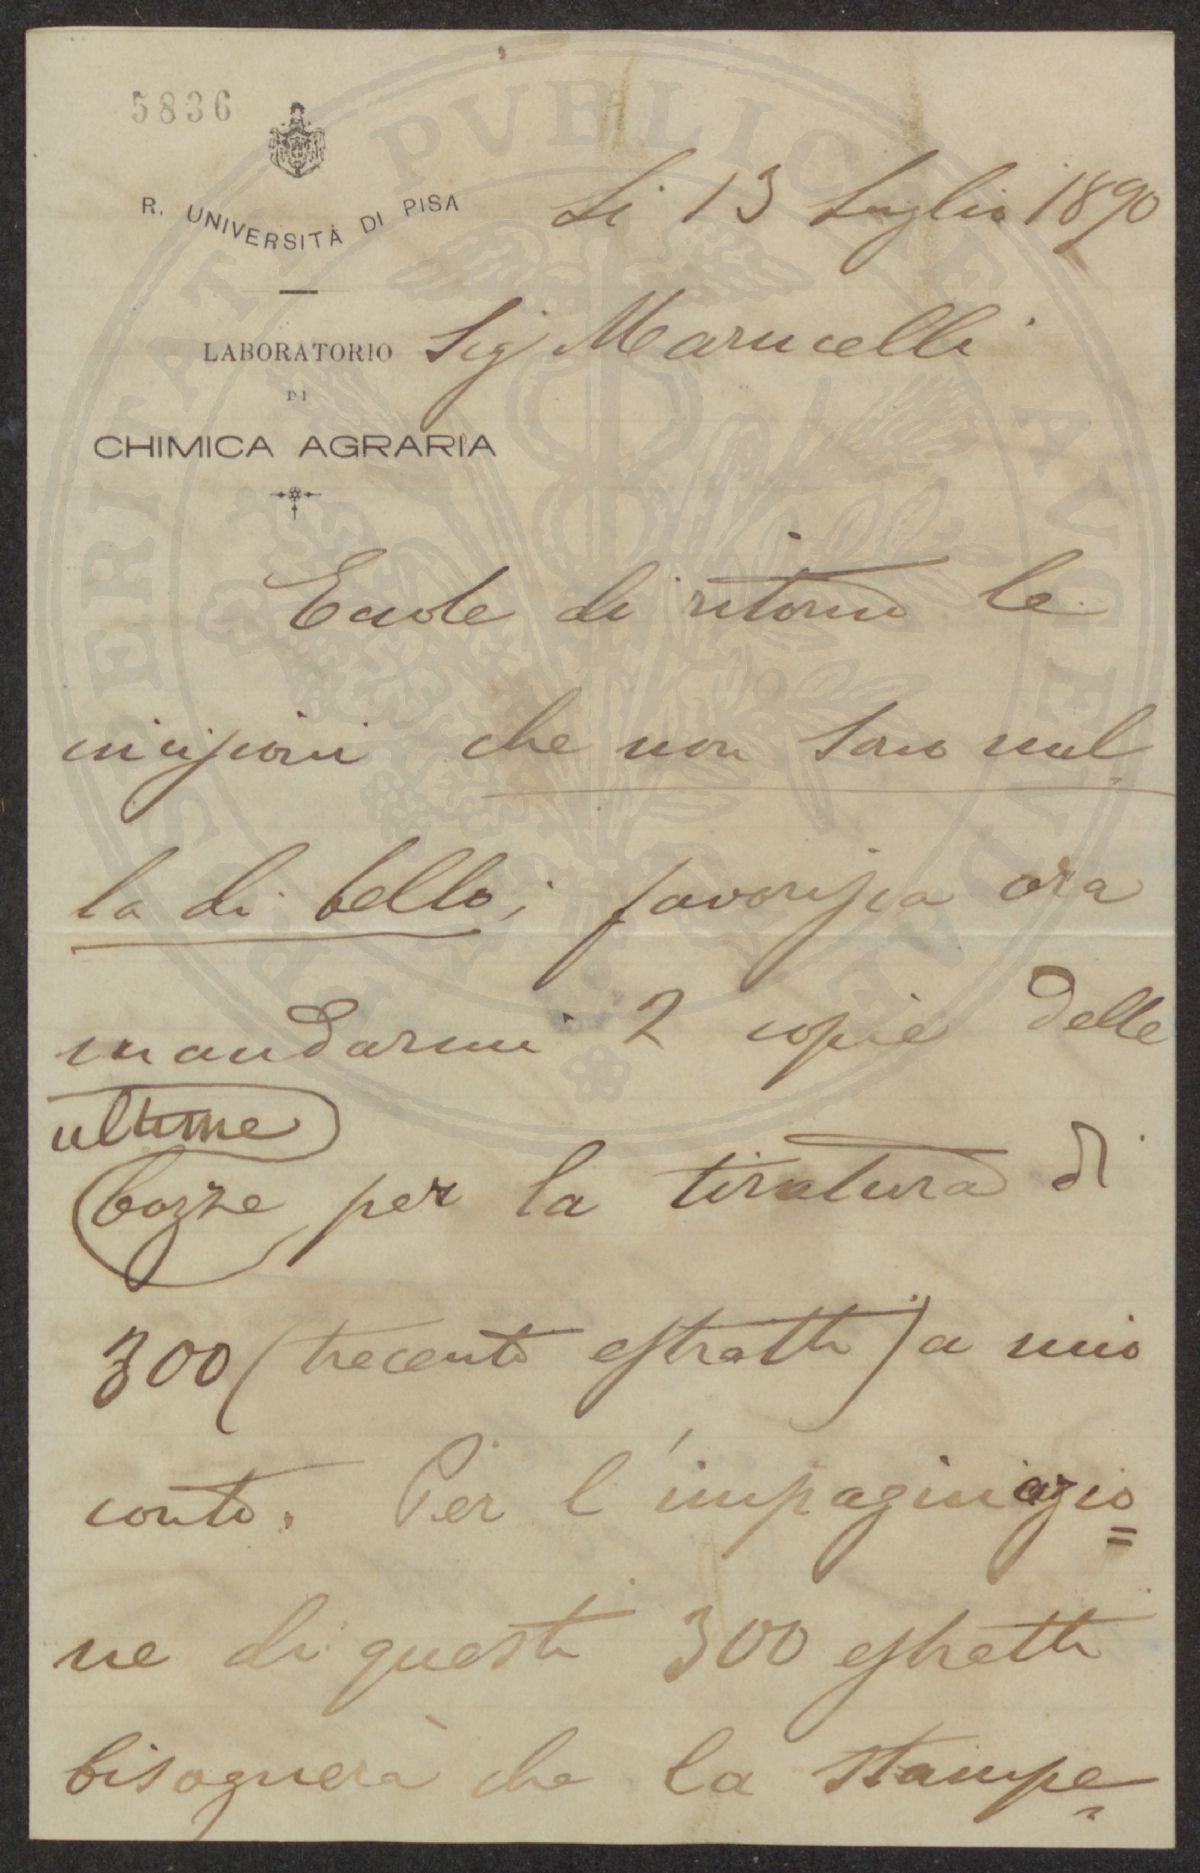 5836
R. UNIVERSITÀ DI PISA
Li 13 Luglio 1890
LABORATORIO
DI
CHIMICA AGRARIA
Sig Marucelli
Eccole di ritorno le
incisioni che non sono nul
la di bello; favorisca ora
mandarmi 2 copie delle
ultime
bozze per la tiratura di
300 (trecento estratti) a mio
conto. Per l'impaginazio=
ne di questi 300 estratti
bisognerà che la stampe
PROSPERITATI PVBLICAE AVGENDAE